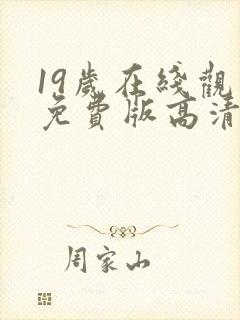 19歲在綫觀
免費版高清
周家山